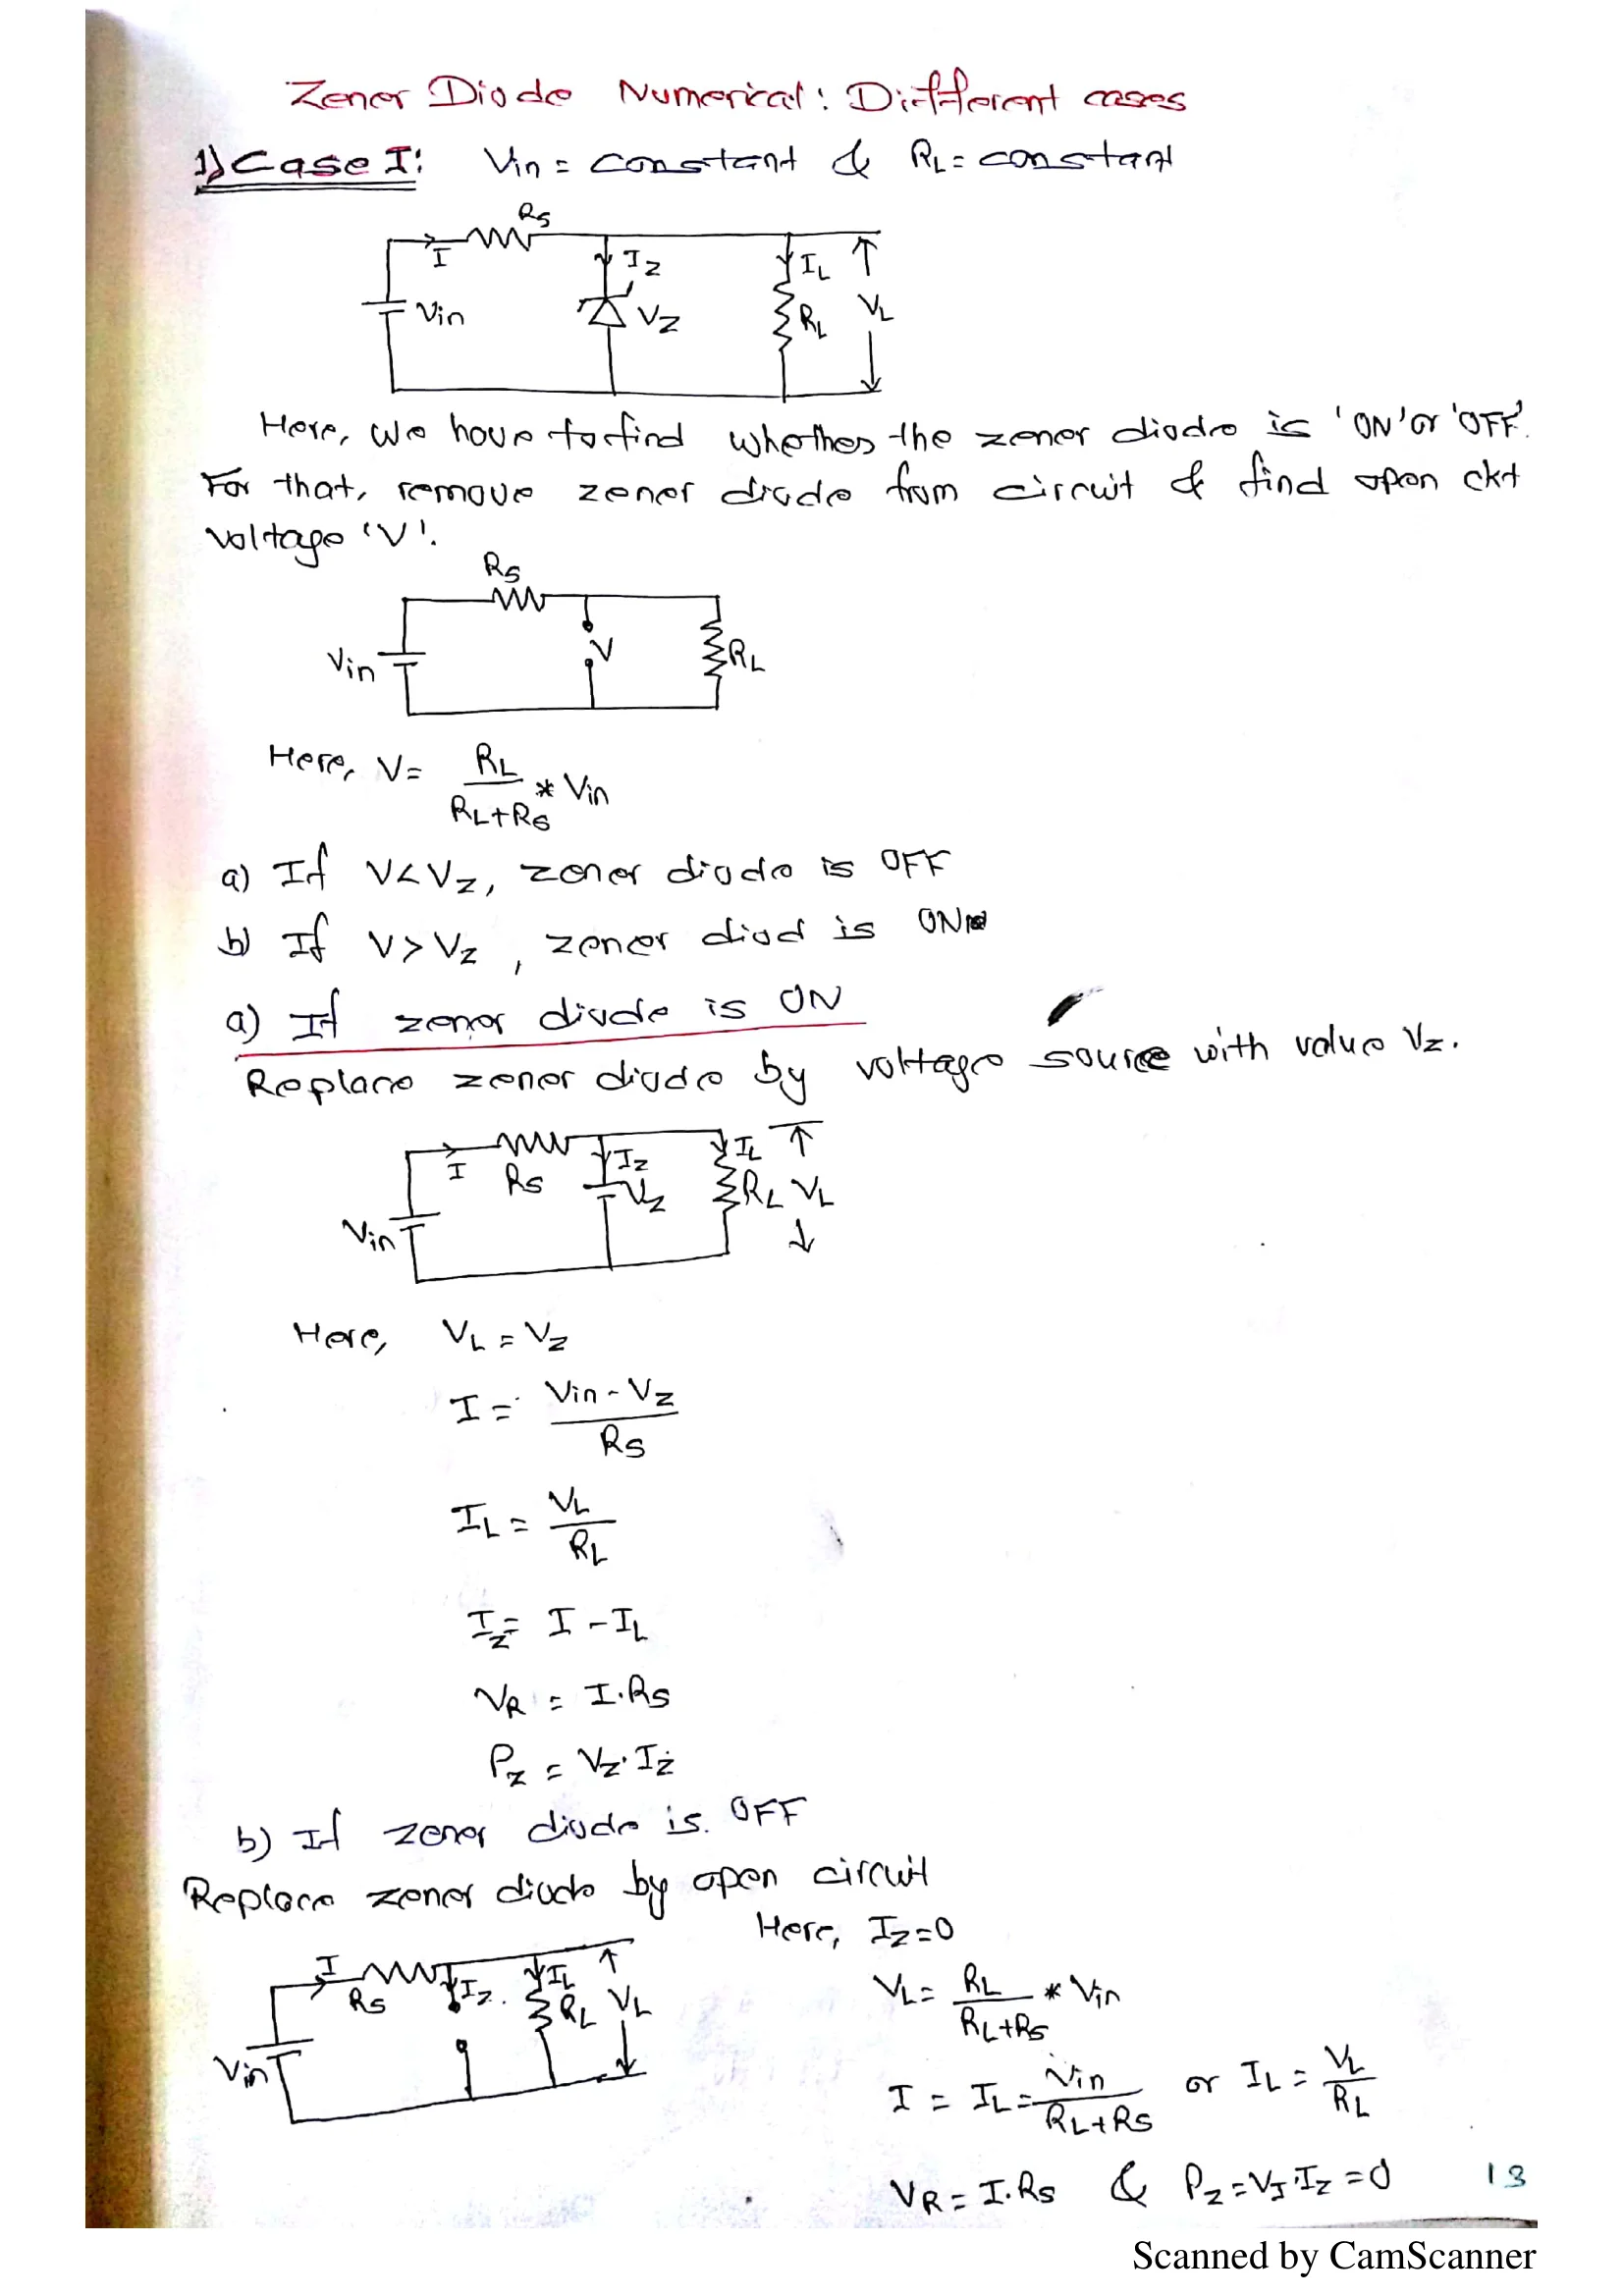 Zener Diode Numerical: Different cases
1) Case I: Vin = constant & RL = constant
Rs
I
Iz
IL
Vin
Vz
RL
VL
Here, we have to find whether the zener diode is 'ON' or 'OFF'.
For that, remove zener diode from circuit & find open ckt
voltage 'V'.
Rs
Vin
V
RL
Here, V = RL / (RL+Rs) * Vin
a) If V < Vz, zener diode is OFF
b) If V > Vz, zener diod is ON
a) If zener diode is ON
Replace zener diode by voltage source with value Vz.
I
Rs
Iz
Vz
IL
RL
VL
Vin
Here, VL = Vz
I = (Vin - Vz) / Rs
IL = VL / RL
Iz = I - IL
VR = I.Rs
Pz = Vz.Iz
b) If zener diode is OFF
Replace zener diode by open circuit
Here, Iz = 0
I
Rs
Iz
IL
RL
VL
Vin
VL = RL / (RL+Rs) * Vin
I = IL = Vin / (RL+Rs) or IL = VL / RL
VR = I.Rs & Pz = Vz.Iz = 0
13
Scanned by CamScanner